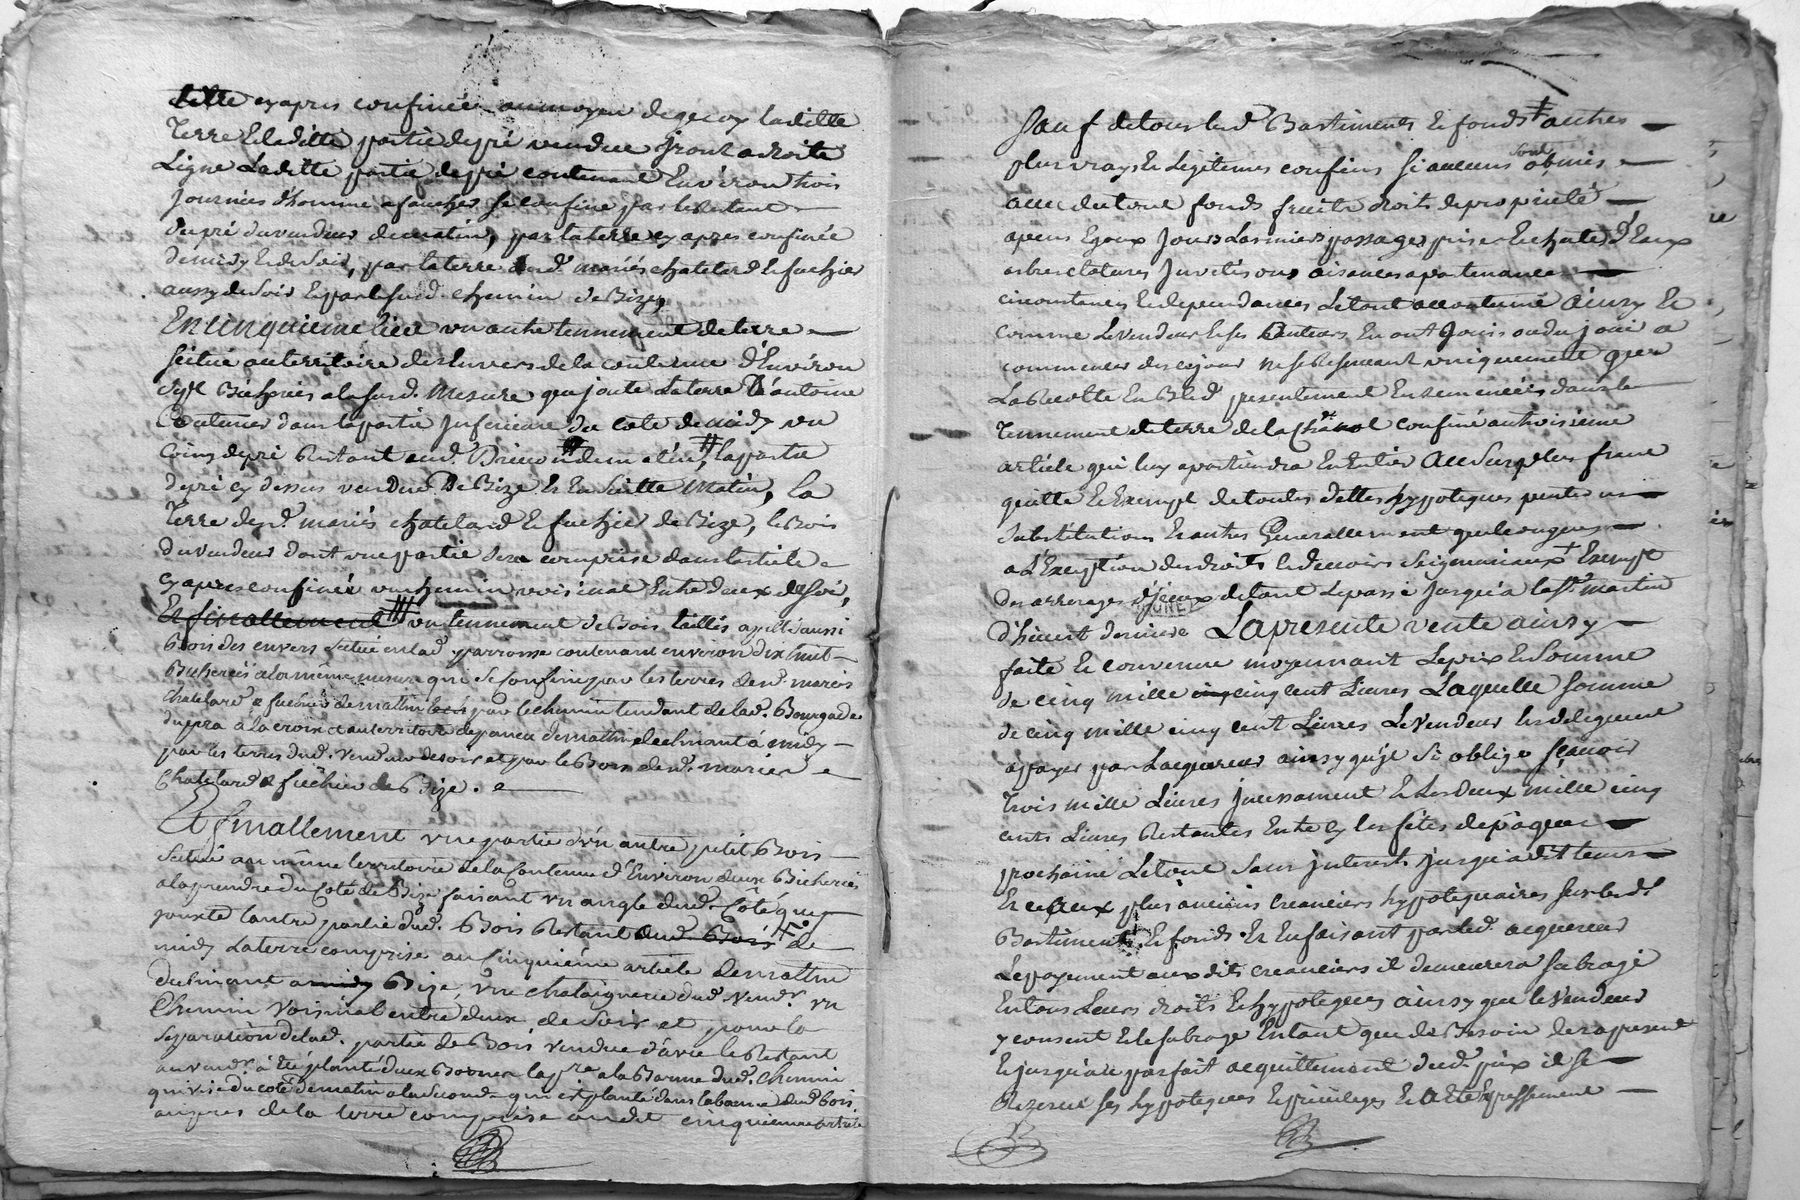 ditte cy apres confinée au moyen de quoy laditte
Terre Et laditte partie de pré vendue jront a droite
Ligne Laditte partie de pré contenant Environ trois
journées d'homme a faucher se confine par le Restant
du pré du vendeur de matin, par la terre cy apres confinée
de midy Et de soir, par la terre desd. mariés chatelard Et fuchier
aussy de soir Et par le susd. chemin de Bize,
En cinquieme lieu un autre tennement de terre
scitué au territoire des Envers de la contenue d'Environ
sept Bicherées a la susd. Mesure qui joute La terre d'antoine
dans la partie Inferieure du coté de midy un
Coing de pré Restant aud. de matin, la partie
de pré cy dessus vendue De Bize Et Ensuitte Matin, La
Terre desd. mariés chatelard Et fuchier de Bize, le Bois
du vendeur dont une partie sera comprise dans l'article
cy apres confiné un chemin voisinal Entre deux de soir,
Et finallement un tennement de Bois taillis appellé aussi
Bois des envers scitué en lad. parroisse contenant environ dix huit
Bicherées a la même mesure qui se confine par les terres desd. mariés
chatelard et fuchier de mattin par le chemin tendant de lad. Bourgade
dupra a la croix du territoire de de mattin declinant à midy
par les terres dud. vendeur de soir et par le Bois desd. mariés
chatelard et fuchier de Bize.
Et finallement une partie d'un autre petit Bois
scitué au même territoire de la Contenue d'Environ deux Bicherées
a la prendre du Coté de Bize faisant un angle dud. Côté qui
jouxte l'autre partie dud. Bois Restant aud. Bois de
midy La terre comprise au Cinquieme article De mattin
declinant a midy Bize, une chataignerie dud. vendr. un
Chemin Voisinal entre deux de soir et pour la
separation de lad. partie de Bois vendue d'avec le Restant
au vendr. a été planté deux Bornes la pre. a la Barme dud. chemin
qui vise du coté de matin a la seconde qui est planté dans la barme dud. bois
aupres de la terre comprise audit cinquieme article
sauf de tous lesd. Bastiments Et fonds autres
plus vrays Et Legitimes confins si aucuns sont obmis
avec du tout fonds fruits droits de proprieté
apens Egoux Jours Larmiers passages prises Et chutes d'Eaux
arbres clotures Servitisons aisances apartenances
circonstances Et dependances Letout accoutumé Ainsy Et
comme Le vendeur Et ses auteurs En ont Jouis ou du jouir a
commencer des cejour ne se Reservant uniquement que
La Recolte En Bled presentement Ensemencées dans le
Tennement de terre de la confiné au troisieme
article qui luy apartiendra En Entier Au surplus franc
quitte Et Exempt de toutes dettes hypoteques
substitutions Et autres Generallement quelconques
a l'Exception des droits Et devoirs Seigneuriaux Exempt
des arrerages d'iceux de tout Le passé jusqu'à la St. martin
d'hivert derniere La presente vente ainsy
faite Et convenue moyennant Le prix Et Somme
de cinq mille cinq cinq cent Livres Laquelle somme
de cinq mille cinq cent Livres Le vendeur les delegue
a payer par L'acquereur ainsy qu'il s'i oblige sçavoir
Trois mille Livres Incessament Et Les Deux mille cinq
cents Livres Restantes Entre cy les fêtes de pâques
prochaine Letout sans Interests jusqu'à dit tems
Et ce aux plus anciens creanciers hypotequaires sur lesd.
Bastiments Et fonds. Et En faisant par led. acquereur
Le payement auxdits creanciers il demeurera subrogé
En tous Leurs droits Et hypoteques ainsy que le vendeur
y consent Et le subroge Entant que de Besoin Des apresent
Et jusqu'au parfait acquittement dud. prix il se
Reserve ses hypoteques Et privileges Et a Eté Expressement